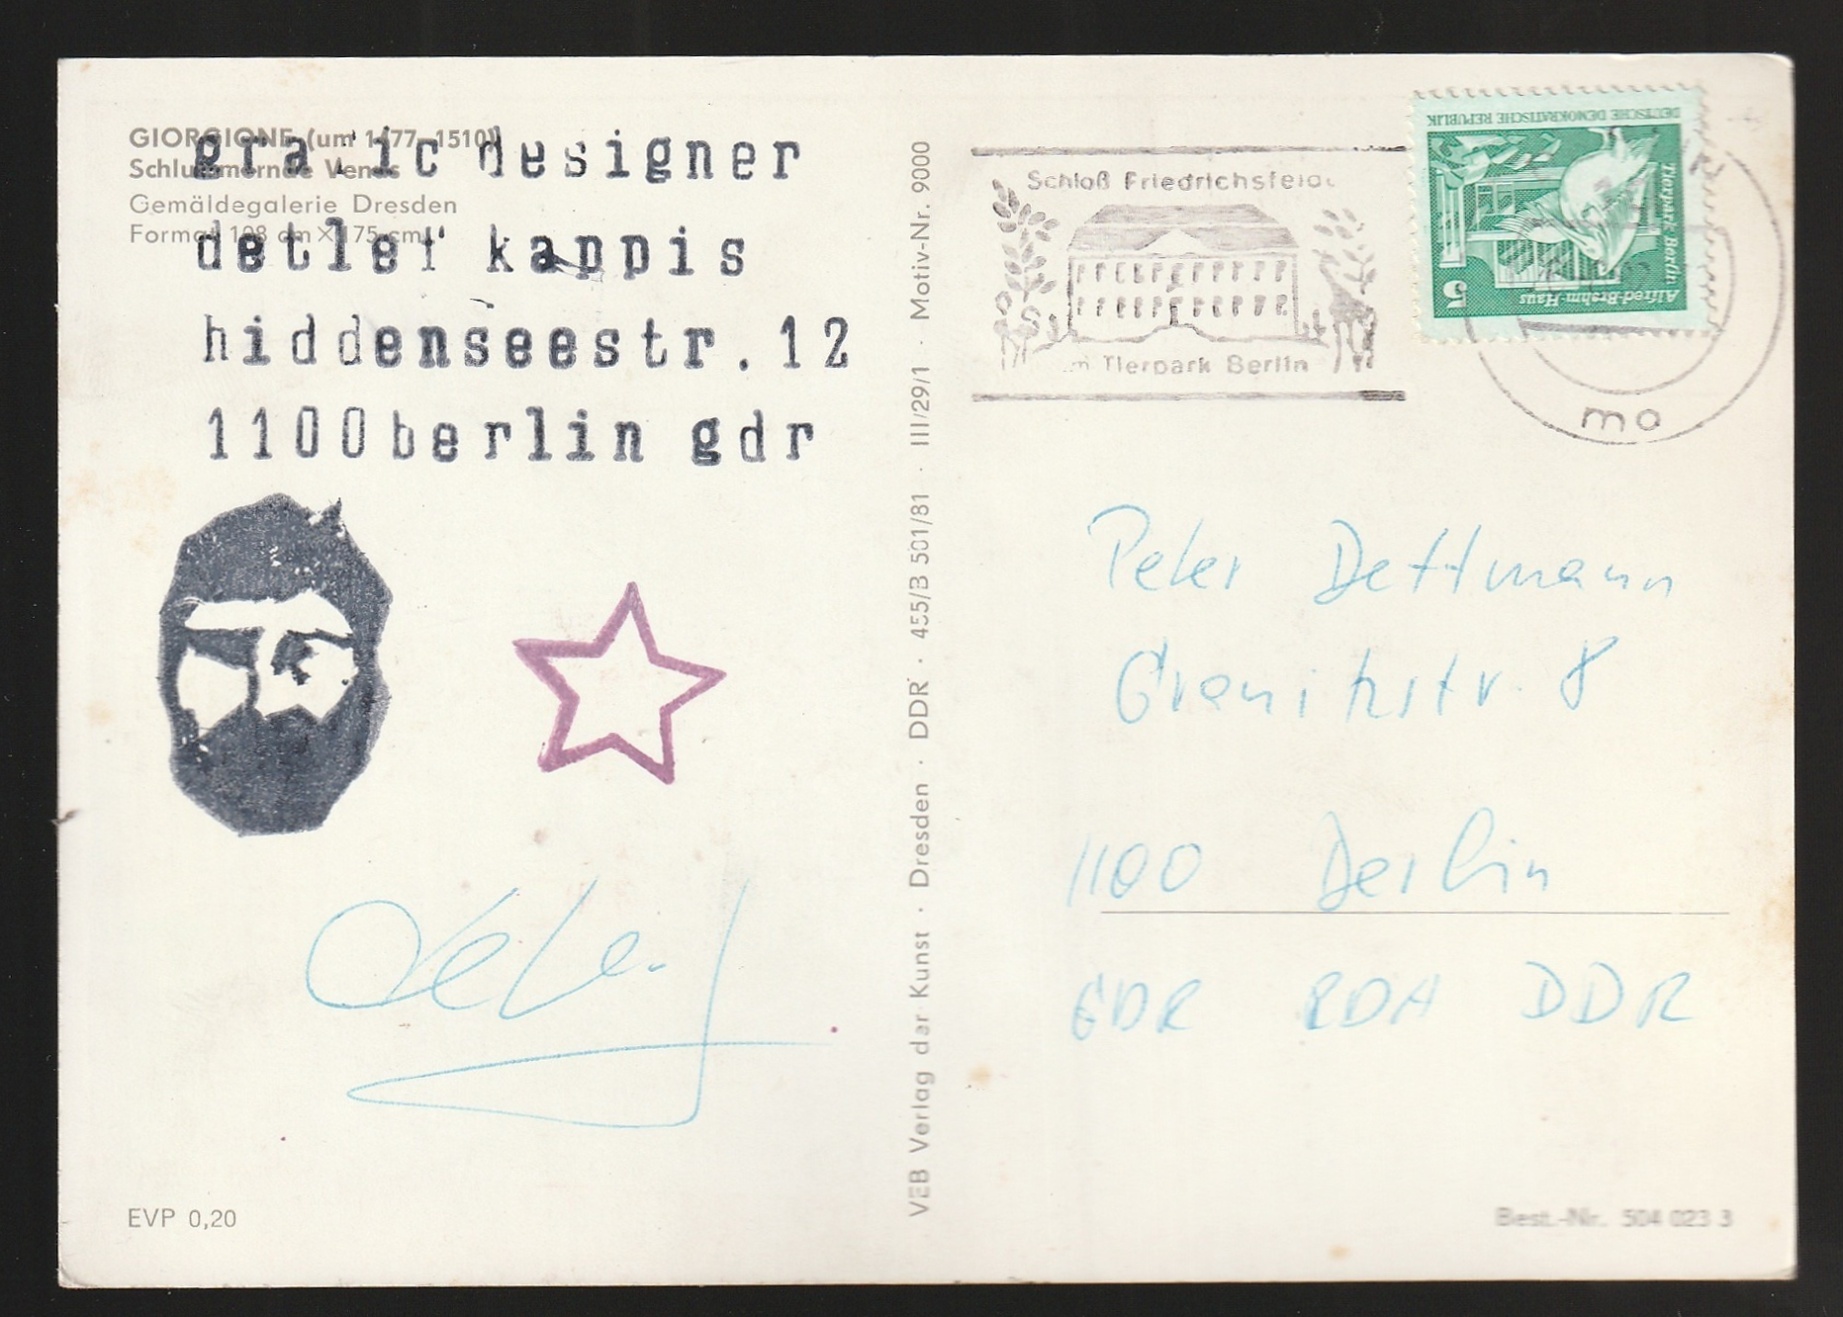 GIORGIONE (um 1477–1510)
Schlummernde Venus
Gemäldegalerie Dresden
Format 108 cm × 175 cm
grafic designer
detlef kappis
hiddenseestr. 12
1100 berlin gdr
EVP 0,20
VEB Verlag der Kunst · Dresden · DDR · 455/B 501/81 · III/29/1 · Motiv-Nr. 9000
Schloß Friedrichsfelde
im Tierpark Berlin
DEUTSCHE DEMOKRATISCHE REPUBLIK
Tierpark Berlin
Alfred-Brehm-Haus
5
ma
Peter Dettmann
Granitzstr. 8
1100 Berlin
GDR RDA DDR
Best.-Nr. 504 023 3